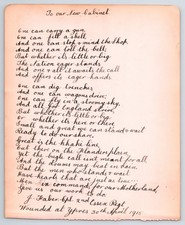 To our New Cabinet
One can carry a gun,
One can fill a shell,
And one can stop & mind the shop
And one can toll the bell;
But whether its little or big
The Nation eager stands
And one & all it awaits the call
And offers its eager hands.
One can dig trenches
And one can wagons down;
One can fly in a stormy sky,
And all for England's crown
But whether its little or big
or whether its here or there
Instant and great we can stand & wait
Ready to do our share.
Great is the khaki line
Out there on the Flanders plain
Yet the bugle call isnt meant for all
And the drums may beat in vain
And the men who stand & wait
Have hearts that are just as
Give a command for our Motherland,
Give us our work to do
J. Faber. Cpl. 2nd Essex Regt.
Wounded at Ypres 30th April 1915